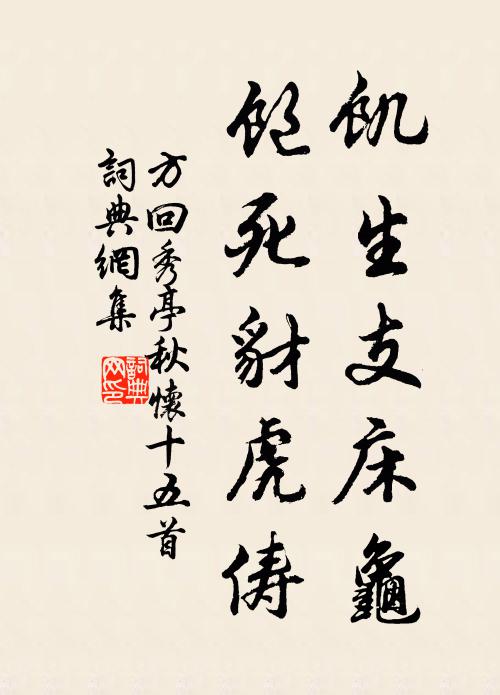 飢生支床龜
飽死豺虎儔
方回秀亭秋懷十五首
詞典網集
詞典網印